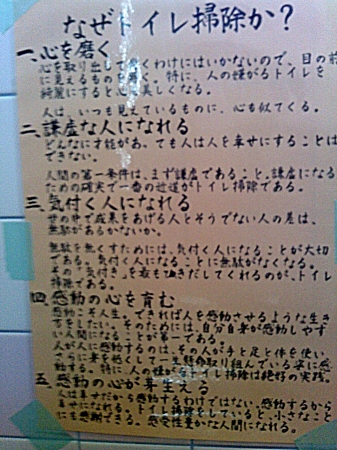 なぜトイレ掃除か？
一、心を磨く
心を取り出して磨くわけにはいかないので、目の前
に見えるものを磨く。特に、人の嫌がるトイレを
綺麗にすると心も美しくなる。
人は、いつも見ているものに、心も似てくる。
二、謙虚な人になれる
どんなに才能があっても人は人を幸せにすることは
できない。
人間の第一条件は、まず謙虚であること。謙虚になる
ための確実で一番の近道がトイレ掃除である。
三、気付く人になれる
世の中で成果をあげる人とそうでない人の差は、
無駄があるかないか。
無駄を無くすためには、気付く人になることが大切
である。気付く人になることに無駄がなくなる。
その"気付き"を最も引きだしてくれるのが、トイレ
掃除である。
四、感動の心を育む
感動こそ人生。できれば人を感動させるような生き
方をしたい。そのためには、自分自身が感動しやす
い人間になることが第一である。
人が人に感動するのは、その人が手と足と体を使い
さらに身を低くして一生懸命取り組んでいる姿に感
動する。特に、人の嫌がるトイレ掃除は絶好の実践。
五、感動の心が芽生える
人は幸せだから感動するわけではない。感動するから
幸せになれる。トイレ掃除をしていると、小さなこと
にも感謝できる。感受性豊かな人間になれる。